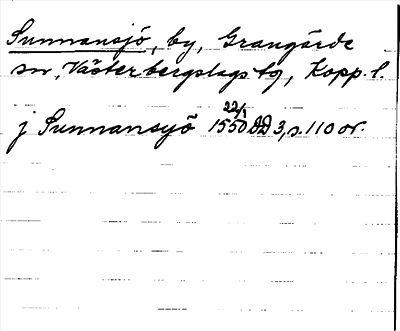 Sunnansjö, by, Grangärde
sn, Västerbergslags tg, Kopp. l.
22/1
j Sunnansyö 1550 DD 3, s. 110 or.